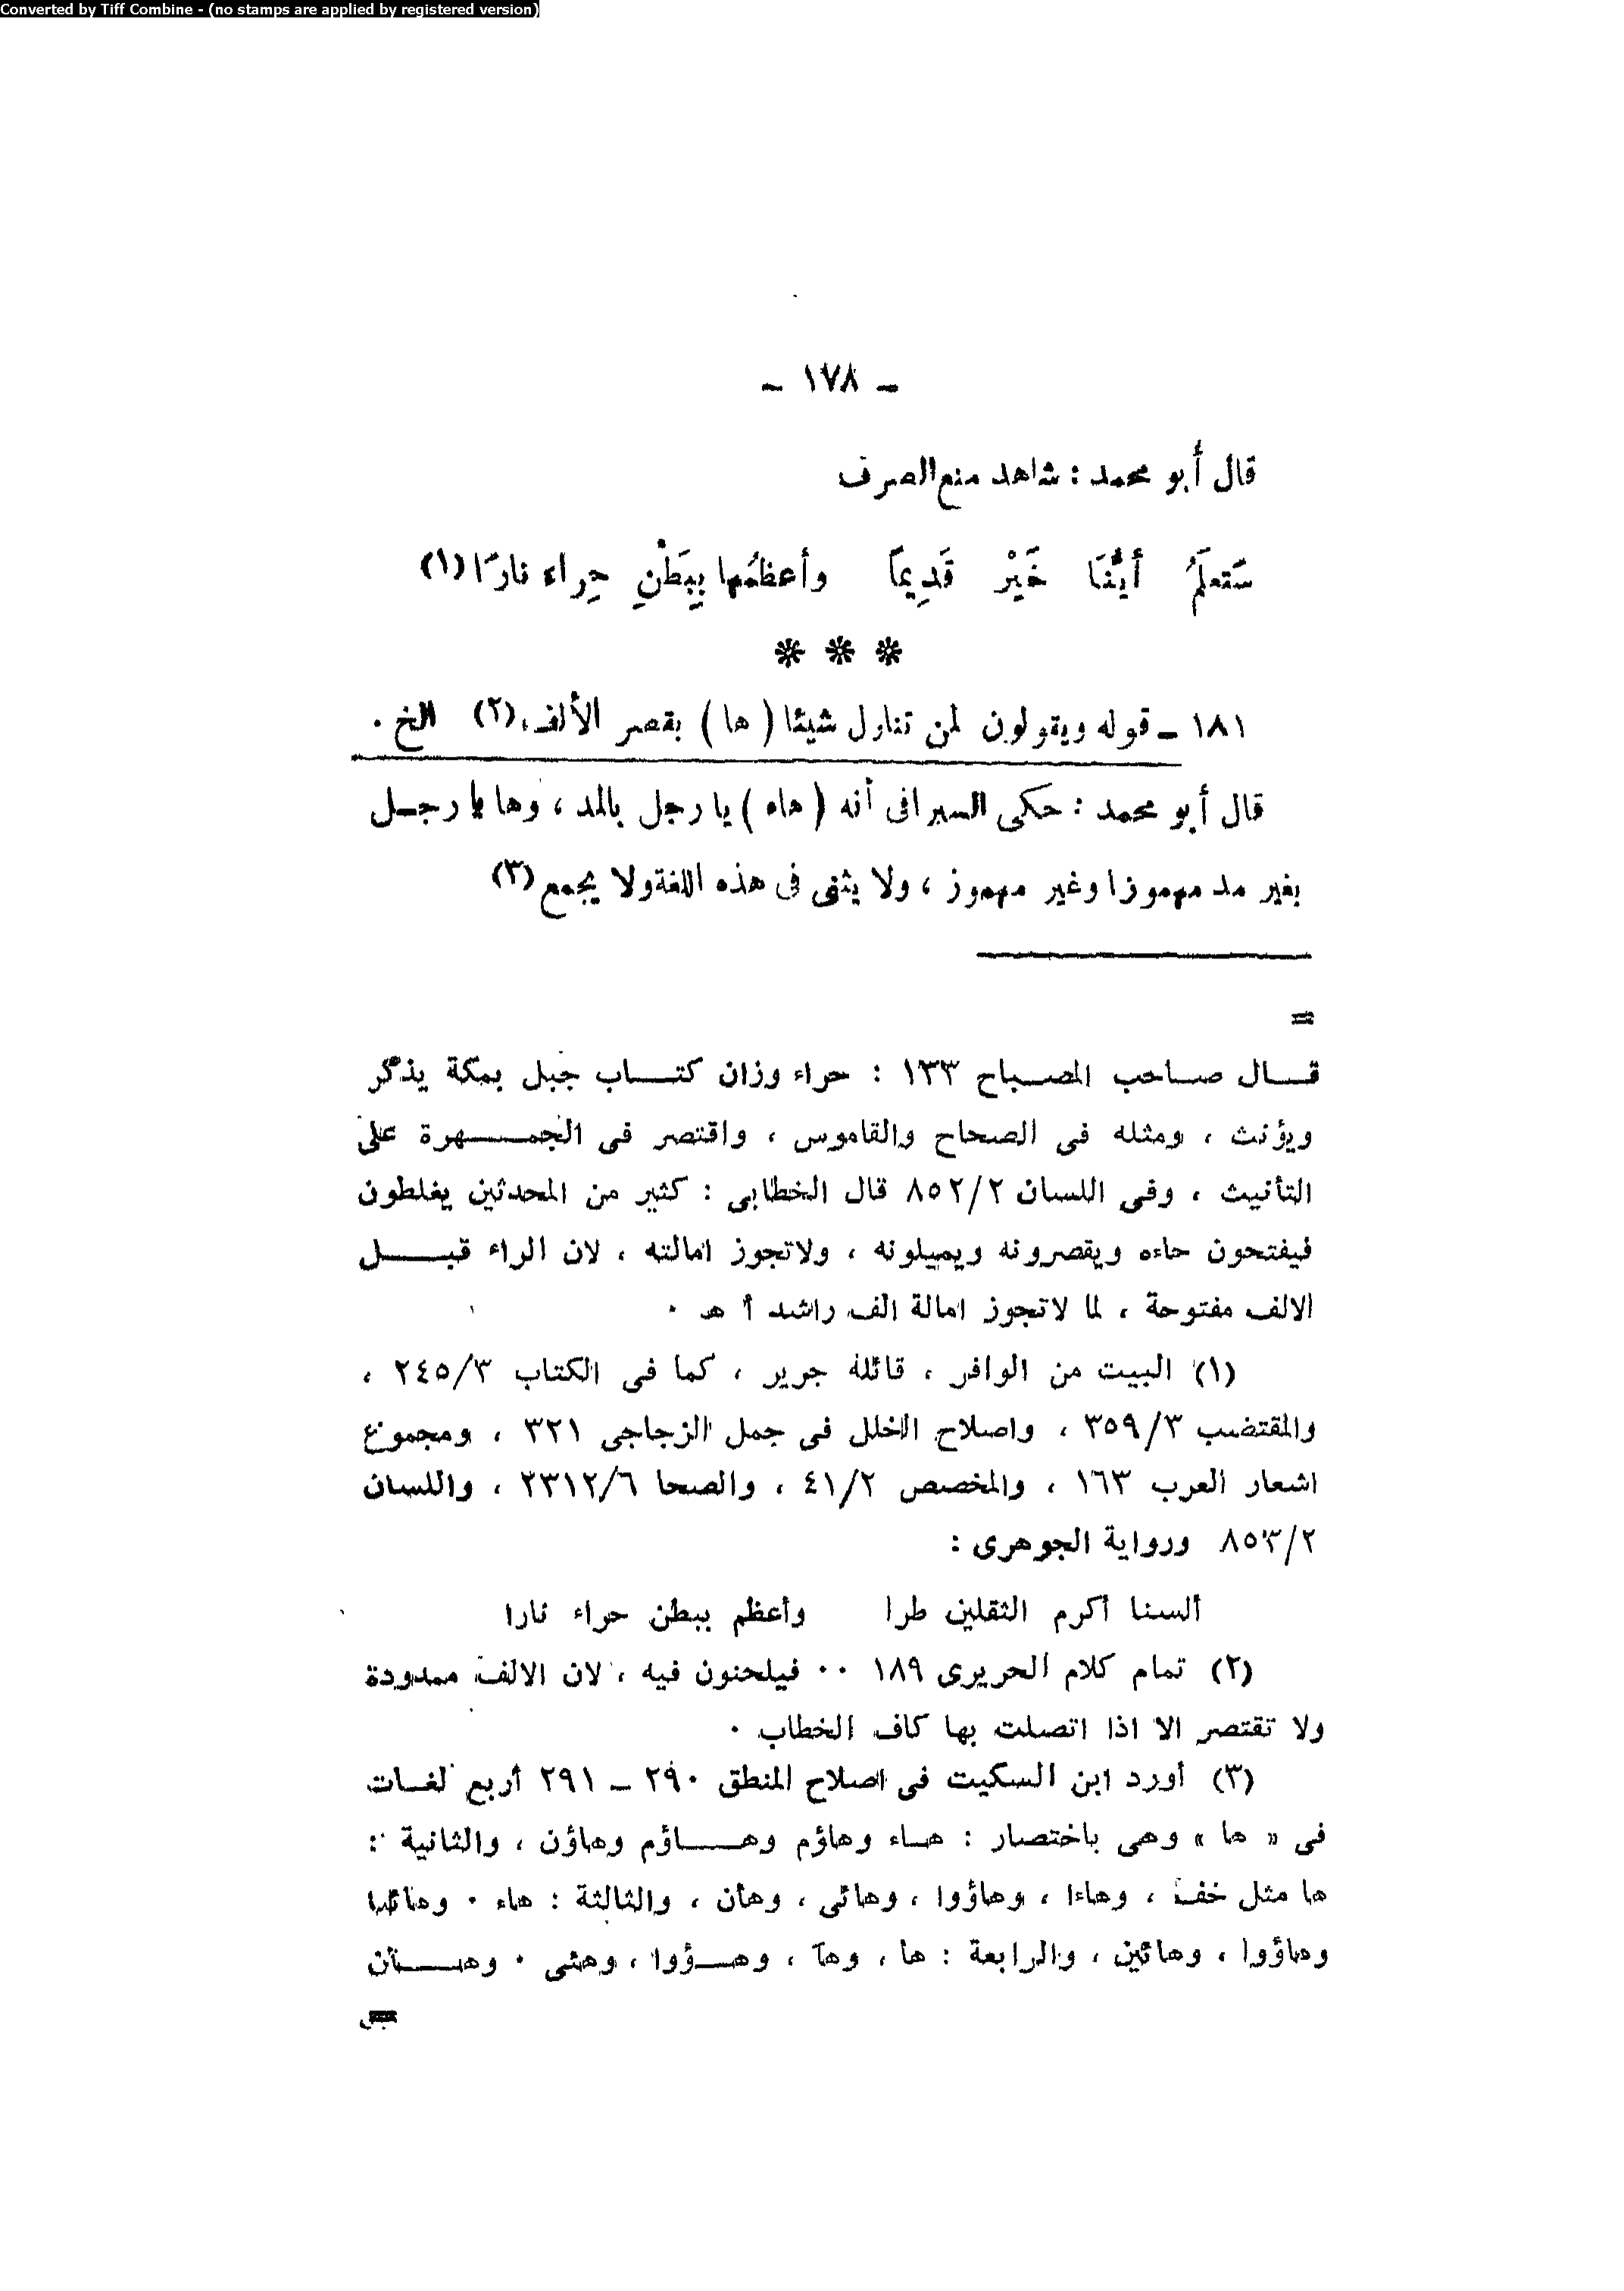 Converted by Tiff Combine - (no stamps are applied by registered version)
ـ ١٧٨ ـ
قال أبو محمد : شاهد منع الصرف
سَتعلَمُ أيُّنَا خَيْر قَدِيماً وأعظمُها بِبَطْنِ حِراء نارَا (١)
❋ ❋ ❋
١٨١ ـ قوله ويقولون لمن تناول شيئا ( ها ) بقصر الألف ، (٢) الخ .
قال أبو محمد : حكى السيرافى أنه ( هاء ) يا رجل بالمد ، وها يا رجـل
بغير مد مهموزا وغير مهموز ، ولا يثنى فى هذه اللغة ولا يجمع (٣)
=
قـــال صـاحب المصـباح ١٣٣ : حراء وزان كتـــاب جبل بمكة يذكر
ويؤنث ، ومثله فى الصحاح والقاموس ، واقتصر فى الجمـــهرة على
التأنيث ، وفى اللسان ٨٥٢/٢ قال الخطابى : كثير من المحدثين يغلطون
فيفتحون حاءه ويقصرونه ويميلونه ، ولاتجوز امالته ، لان الراء قبـــل
الالف مفتوحة ، لما لاتجوز امالة الف راشد أ هـ ٠
(١) البيت من الوافر ، قائله جرير ، كما فى الكتاب ٢٤٥/٣ ،
والمقتضب ٣٥٩/٣ ، واصلاح الخلل فى جمل الزجاجى ٣٢١ ، ومجموع
اشعار العرب ١٦٣ ، والمخصص ٤١/٢ ، والصحا ٢٣١٢/٦ ، واللسان
٨٥٣/٢ ورواية الجوهرى :
ألسنا أكرم الثقلين طرا وأعظم ببطن حراء نارا
(٢) تمام كلام الحريرى ١٨٩ ٠٠ فيلحنون فيه ، لان الالف ممدودة
ولا تقتصر الا اذا اتصلت بها كاف الخطاب ٠
(٣) أورد ابن السكيت فى اصلاح المنطق ٢٩٠ ـ ٢٩١ أربع لغـات
فى « ها » وهى باختصار : هـاء وهاؤم وهـــاؤم وهاؤن ، والثانية :
ها مثل خف ، وهاءا ، وهاؤوا ، وهائى ، وهأن ، والثالثة : هاء ٠ وهائيا
وهاؤوا ، وهائين ، والرابعة : هأ ، وهآ ، وهــؤوا ، وهئى ٠ وهـــأن
=